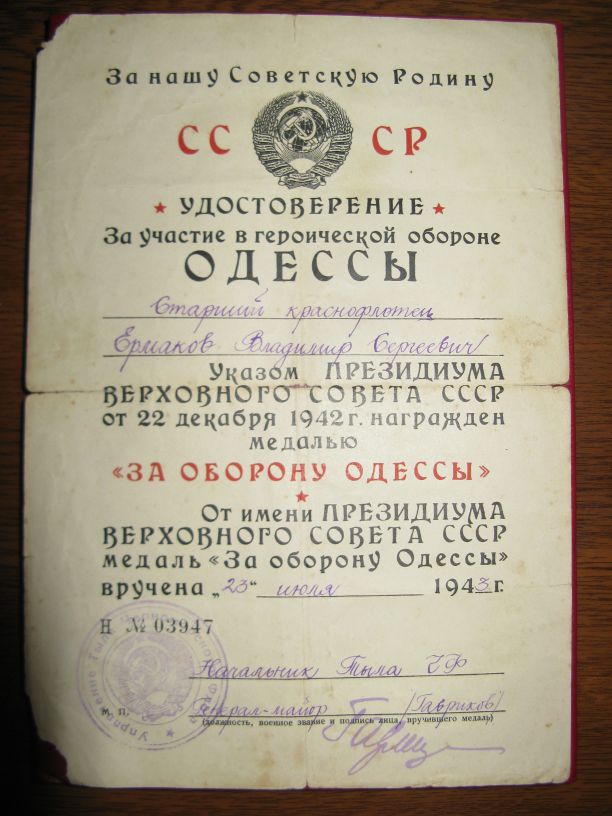 За нашу Советскую Родину
СС СР
УДОСТОВЕРЕНИЕ
За участие в героической обороне
ОДЕССЫ
Старший краснофлотец
Ермаков Владимир Сергеевич
Указом ПРЕЗИДИУМА
ВЕРХОВНОГО СОВЕТА СССР
от 22 декабря 1942 г. награжден
медалью
«ЗА ОБОРОНУ ОДЕССЫ»
От имени ПРЕЗИДИУМА
ВЕРХОВНОГО СОВЕТА СССР
медаль «За оборону Одессы»
вручена „23“ июля 1943 г.
Н № 03947
Начальник Тыла ЧФ
м. п. Генерал-майор (Гавриков)
(должность, военное звание и подпись лица, вручившего медаль)
Управление Тыла